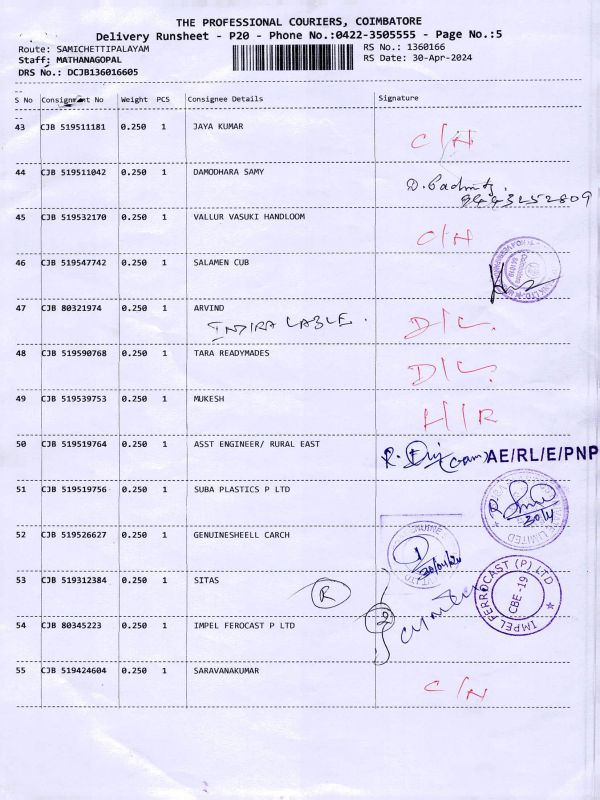 THE PROFESSIONAL COURIERS, COIMBATORE
Delivery Runsheet - P20 - Phone No.:0422-3505555 - Page No.:5
Route: SAMICHETTIPALAYAM
RS No.: 1360166
Staff: MATHANAGOPAL
RS Date: 30-Apr-2024
DRS No.: DCJB136016605
S No Consignment No Weight PCS Consignee Details Signature
43 CJB 519511181 0.250 1 JAYA KUMAR C/N
44 CJB 519511042 0.250 1 DAMODHARA SAMY
9443252809
45 CJB 519532170 0.250 1 VALLUR VASUKI HANDLOOM C/N
46 CJB 519547742 0.250 1 SALAMEN CUB
47 CJB 80321974 0.250 1 ARVIND D/L
INDIRA LABLE.
48 CJB 519590768 0.250 1 TARA READYMADES D/L
49 CJB 519539753 0.250 1 MUKESH H/R
50 CJB 519519764 0.250 1 ASST ENGINEER/ RURAL EAST AE/RL/E/PNP
51 CJB 519519756 0.250 1 SUBA PLASTICS P LTD
30/4
LIMITED
52 CJB 519526627 0.250 1 GENUINESHEELL CARCH
30/04/24
53 CJB 519312384 0.250 1 SITAS R
IMPEL FERROCAST (P) LTD
CBE-19
54 CJB 80345223 0.250 1 IMPEL FEROCAST P LTD 2
55 CJB 519424604 0.250 1 SARAVANAKUMAR C/N